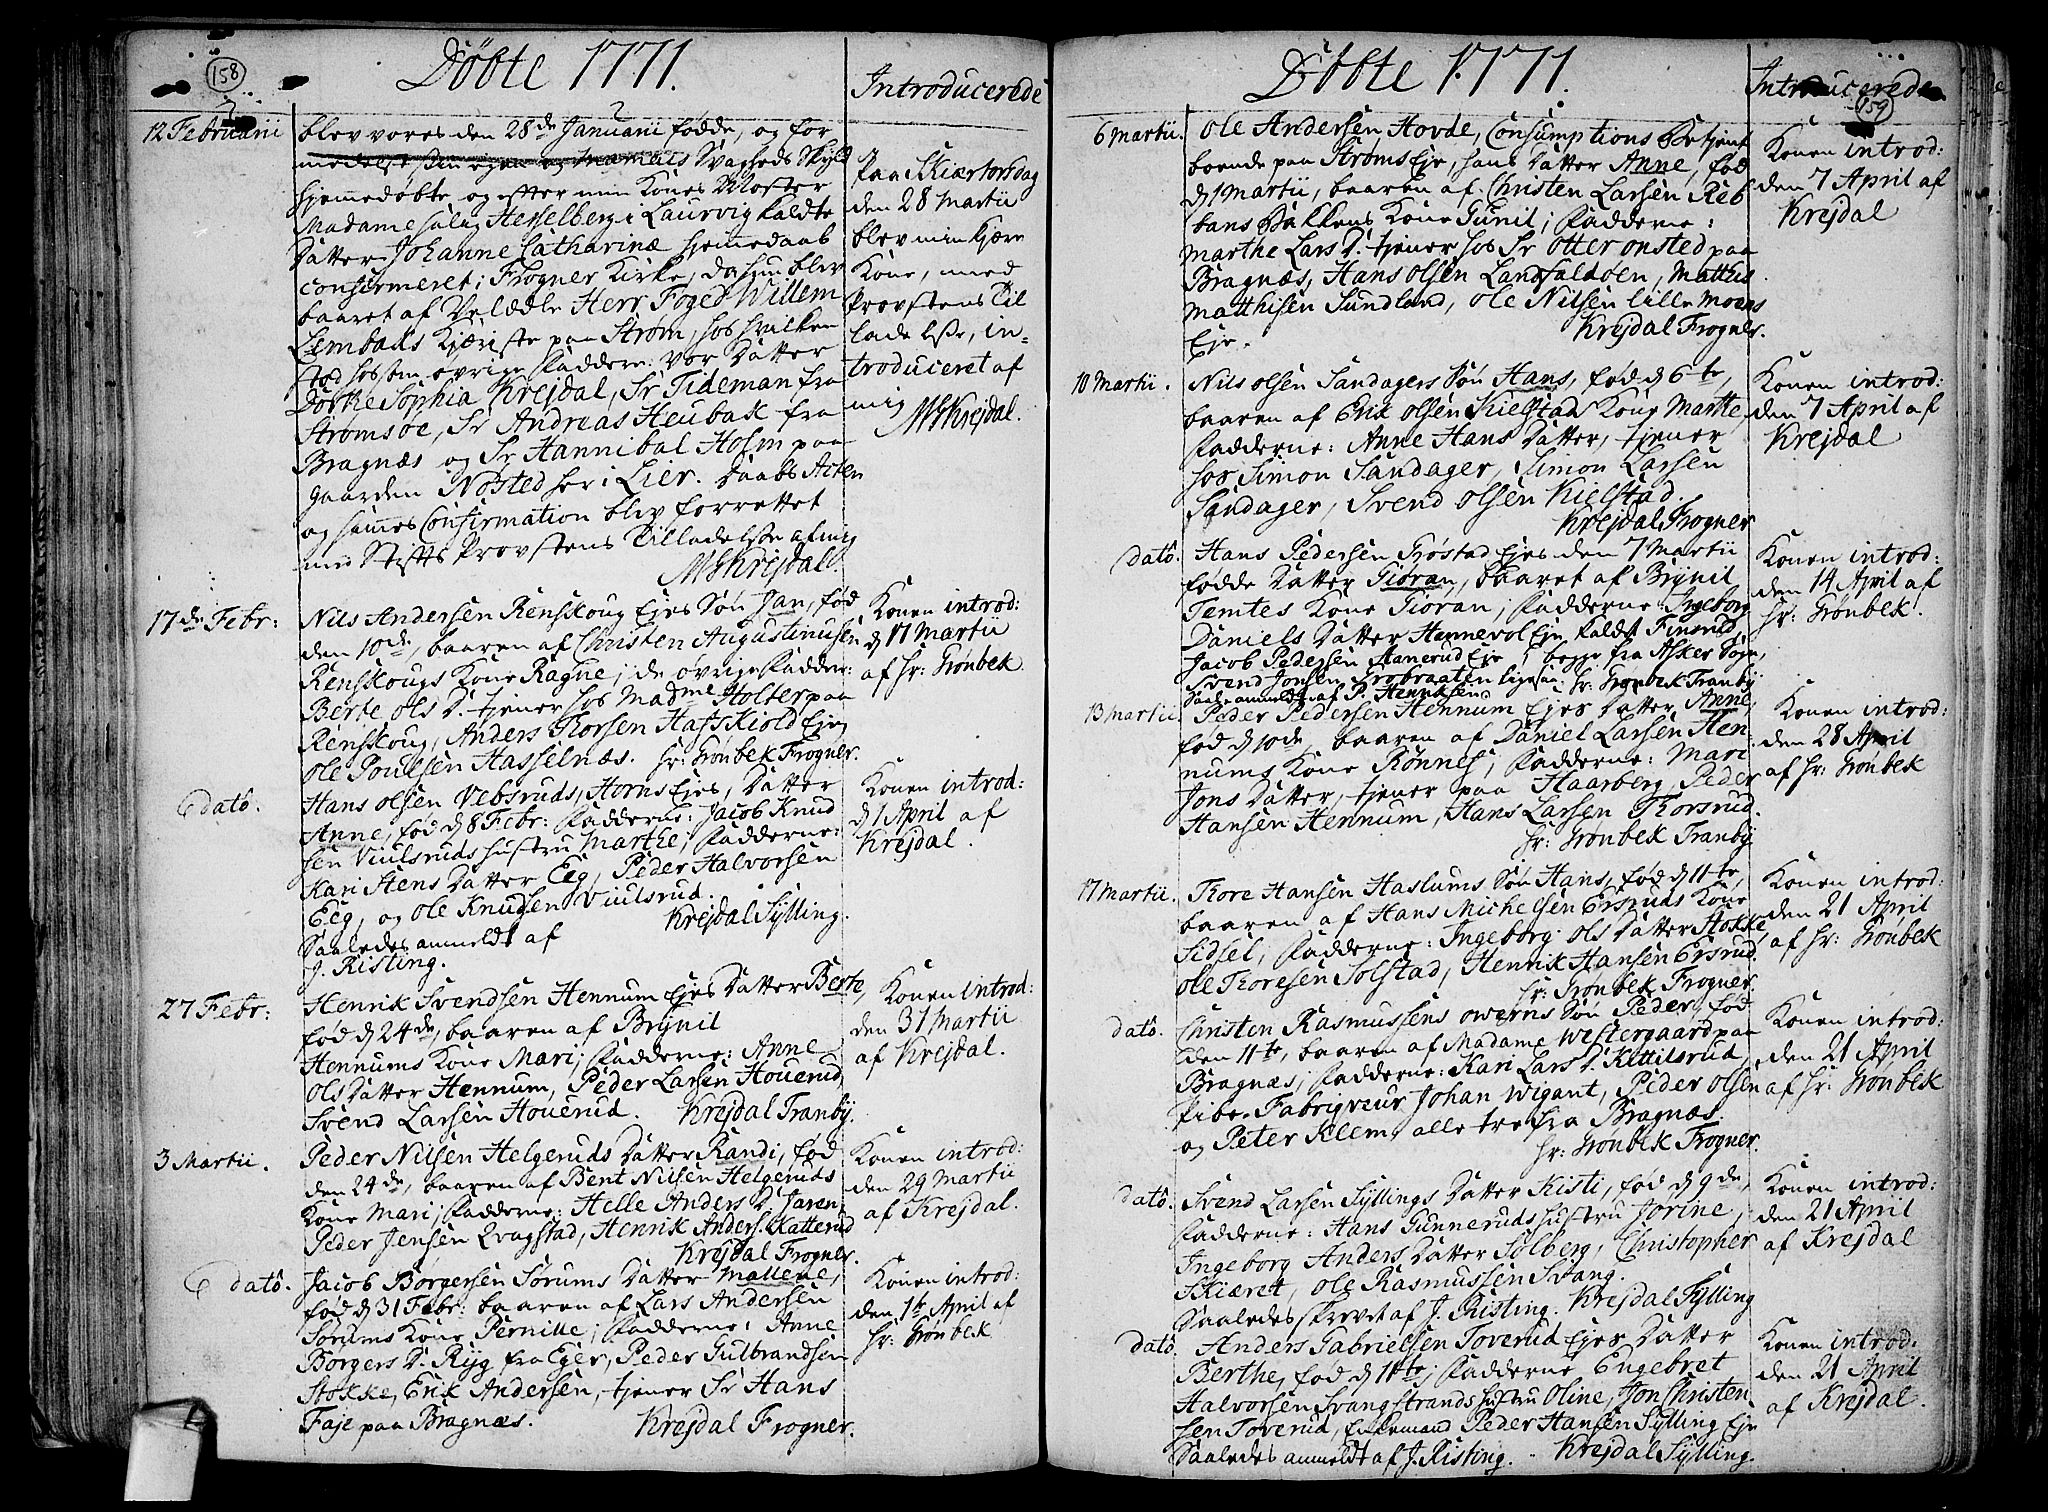 158
Döbte 1771.
Introducerede
12 Februarii
blev vores den 28de Januarii födde, og for
medelst sin egen og Mamas Svagheds Skyld
hjemmedöbte, og efter min Kones Moster
Madame salig Hesselberg i Laurvig kaldte
Datter Johanne Catharinæ hjemedaab
confirmeret i Frogner Kirke, da hun blev
baaret af Velædle Herr Foged Willem
Lembaks Kjæriste paa Ström, hos hvilken
stod hos som övrige Faddere: vor Datter
Dorthe Sophia Krejdal, Sr Tideman fra
Strömsöe, Sr Andreas Heubak fra
Bragnæs og Sr Hannibal Holm paa
gaarden Nösted her i Lier. Daabs Acten
og hännes Confirmation blev forrettet
med Stifts Provstens Tilladelse af mig
MSKrejdal.
Paa Skiærtorsdag
den 28 Martii
blev min kjære
Kone, med
Provstens Til
ladelse, in-
troduceret af
mig
MSKrejdal.
17de Febr:
Nils Andersen Renskoug Ejes Sön Jan, föd
den 10de, baaren af Christen Augustinusen
Renskougs Kone Ragne; de övrige Fadder:
Berte Ols D. tjener hos Madme Holter paa
Renskoug, Anders Thorsen Hafskiold Eje,
Ole Poulsen Hasselnæs. Hr: Grönbek Frogner.
Konen introd:
d 17 Martii
af Hr: Grönbek.
dato.
Hans Olsen Vebsruds, Horns Ejes, Datter
Anne, föd d 8 Febr: Fadderne: Jacob Knud
sen Viulsruds Hustru Marthe, Fadderne:
Kari Stens Datter Eeg, Peder Halvorsen
Eeg, og Ole Knudsen Viulsrud.
Saaledes anmeldt af Krejdal Sylling.
J. Risting.
Konen introd:
d 1 April af
Krejdal.
27 Febr:
Henrik Svendsen Hennum Ejes Datter Berte,
föd d 24de, baaren af Brynil
Hennums Kone Mari; Fadderne: Anne
Ols Datter Hennum, Peder Larsen Houerud,
Svend Larsen Houerud. Krejdal Tranby.
Konen introd:
den 31 Martii
af Krejdal.
3 Martii.
Peder Nilsen Helgeruds Datter Randi, föd
den 24de, baaren af Bent Nilsen Helgeruds
Kone Mari; Fadderne: Helle Anders D. Jaren,
Peder Jensen Qvagstad, Henrik Anders. Katterud
Krejdal Frogner.
Konen introd:
den 29 Martii
af Krejdal.
dato.
Jacob Börgersen Sörums Datter Mallene,
föd d 31 Febr: baaren af Lars Andersen
Sörums Kone Pernille; Fadderne: Anne
Börgers D. Ryg fra Eger, Peder Gulbrandsen
Stokke, Erik Andersen, tjener Sr Hans
Faje paa Bragnæs. Krejdal Frogner.
Konen introd:
den 1te April af
Hr: Grönbek
159
Döbte 1771.
Introducerede
6 Martii.
Ole Andersen Hovde, Consumptions Betjent
boende paa Ströms Eje, hans Datter Anne, föd
d 1 Martii, baaren af Christen Larsen Reb
bans Bakkens Kone Gunil; Fadderne:
Marthe Lars D. tjener hos Sr Otter Onsted paa
Bragnæs, Hans Olsen Landfaldöen, Mathis
Matthisen Sundland, Ole Nilsen lille Moens
Eje. Krejdal Frogner.
Konen introd:
den 7 April af
Krejdal
10 Martii.
Nils Olsen Sandagers Sön Hans, föd d 6te,
baaren af Erik Olsen Kielstad Kone Marthe,
Fadderne: Anne Hans Datter, tjener
hos Simon Sandager, Simon Larsen
Sandager, Svend Olsen Kielstad.
Krejdal Frogner
Konen introd:
den 7 April af
Krejdal
dato.
Hans Pedersen Fröstad Ejes den 7 Martii
födde Datter Giöran, baaret af Brynil
Temtes Kone Giöran; Fadderne Ingeborg
Daniels Datter Hannevol Eje kaldt Finsrud,
Jacob Pedersen Hanerud Eje begge fra Asker Sogn,
Svend Jonsen Grobraaten ligesaa: Hr: Grönbek Tranby
Saal: anmeldt af P. Henriksen
Konen introd:
den 14 April af
Hr: Grönbek.
13 Martii
Peder Pedersen Hennum Ejes Datter Anne,
föd d 10de, baaren af Daniel Larsen Hen-
nums Kone Rönnes; Fadderne: Mari
Jons Datter, tjener paa Haarberg, Peder
Hansen Hennum, Hans Larsen Thorsrud.
Hr: Grönbek Tranby
Konen introd:
den 28 April
af Hr: Grönbek
17 Martii.
Thore Hansen Haslums Sön Hans, föd d 11te,
baaren af Hans Michelsen Ersruds Kone
Sidsel, Fadderne: Ingeborg Ols Datter Stokke,
Ole Thoresen Solstad, Henrik Hansen Ersrud
Hr: Grönbek Frogner.
Konen introd:
den 21 April
af Hr: Grönbek
dato.
Christen Rasmussens Owerns Sön Peder, föd
den 11te, baaren af Madame Westergaard paa
Bragnæs; Fadderne: Kari Lars D. Kittilsrud,
Pibe-Fabriqveur Johan Wigant, Peder Olsen
og Peter Klem, alle tre fra Bragnæs.
Hr: Grönbek Frogner.
Konen introd:
den 21 April
af Hr: Grönbek
dato.
Svend Larsen Syllings Datter Kisti, föd d 9de,
Fadderne: Hans Gunneruds Hustru Jorine,
Ingeborg Anders Datter Solberg, Christopher
Skiæret, Ole Rasmussen Svang.
Saaledes skrevet af J. Risting. Krejdal Sylling
Konen introd:
den 21 April
af Krejdal
dato.
Anders Gabrielsen Toverud Ejes Datter
Berthe, föd d 11te; Fadderne Engebret
Halvorsen Svangstrands Hustru Oline, Jon Christen
sen Toverud, Enkemand Peder Hansen Sylling Eje
Saaledes anmeldt af J. Risting. Krejdal Sylling.
Konen introd:
den 21 April
af Krejdal.